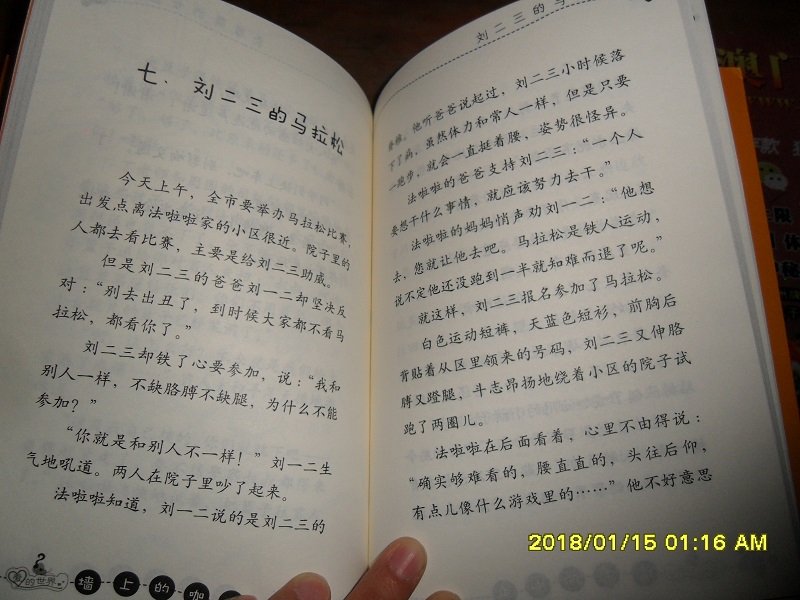 七、刘二三的马拉松
今天上午，全市要举办马拉松比赛，
出发点离法啦啦家的小区很近。院子里的
人都去看比赛，主要是给刘二三助威。
但是刘二三的爸爸刘一二却坚决反
对：“别去出丑了，到时候大家都不看马
拉松，都看你了。”
刘二三却铁了心要参加，说：“我和
别人一样，不缺胳膊不缺腿，为什么不能
参加？”
“你就是和别人不一样！”刘一二生
气地吼道。两人在院子里吵了起来。
法啦啦知道，刘一二说的是刘二三的
的世界
墙上的咖
刘二三的马
他听爸爸说起过，刘二三小时候落
下了病，虽然体力和常人一样，但是只要
一跑步，就会一直挺着腰，姿势很怪异。
法啦啦的爸爸支持刘二三：“一个人
要想干什么事情，就应该努力去干。”
法啦啦的妈妈悄声劝刘一二：“他想
去，您就让他去吧。马拉松是铁人运动，
说不定他还没跑到一半就知难而退了呢。”
就这样，刘二三报名参加了马拉松。
白色运动短裤，天蓝色短衫，前胸后
背贴着从区里领来的号码，刘二三又伸胳
膊又蹬腿，斗志昂扬地绕着小区的院子试
跑了两圈儿。
法啦啦在后面看着，心里不由得说：
“确实够难看的，腰直直的，头往后仰，
有点儿像什么游戏里的……”他不好意思
2018/01/15 01:16 AM